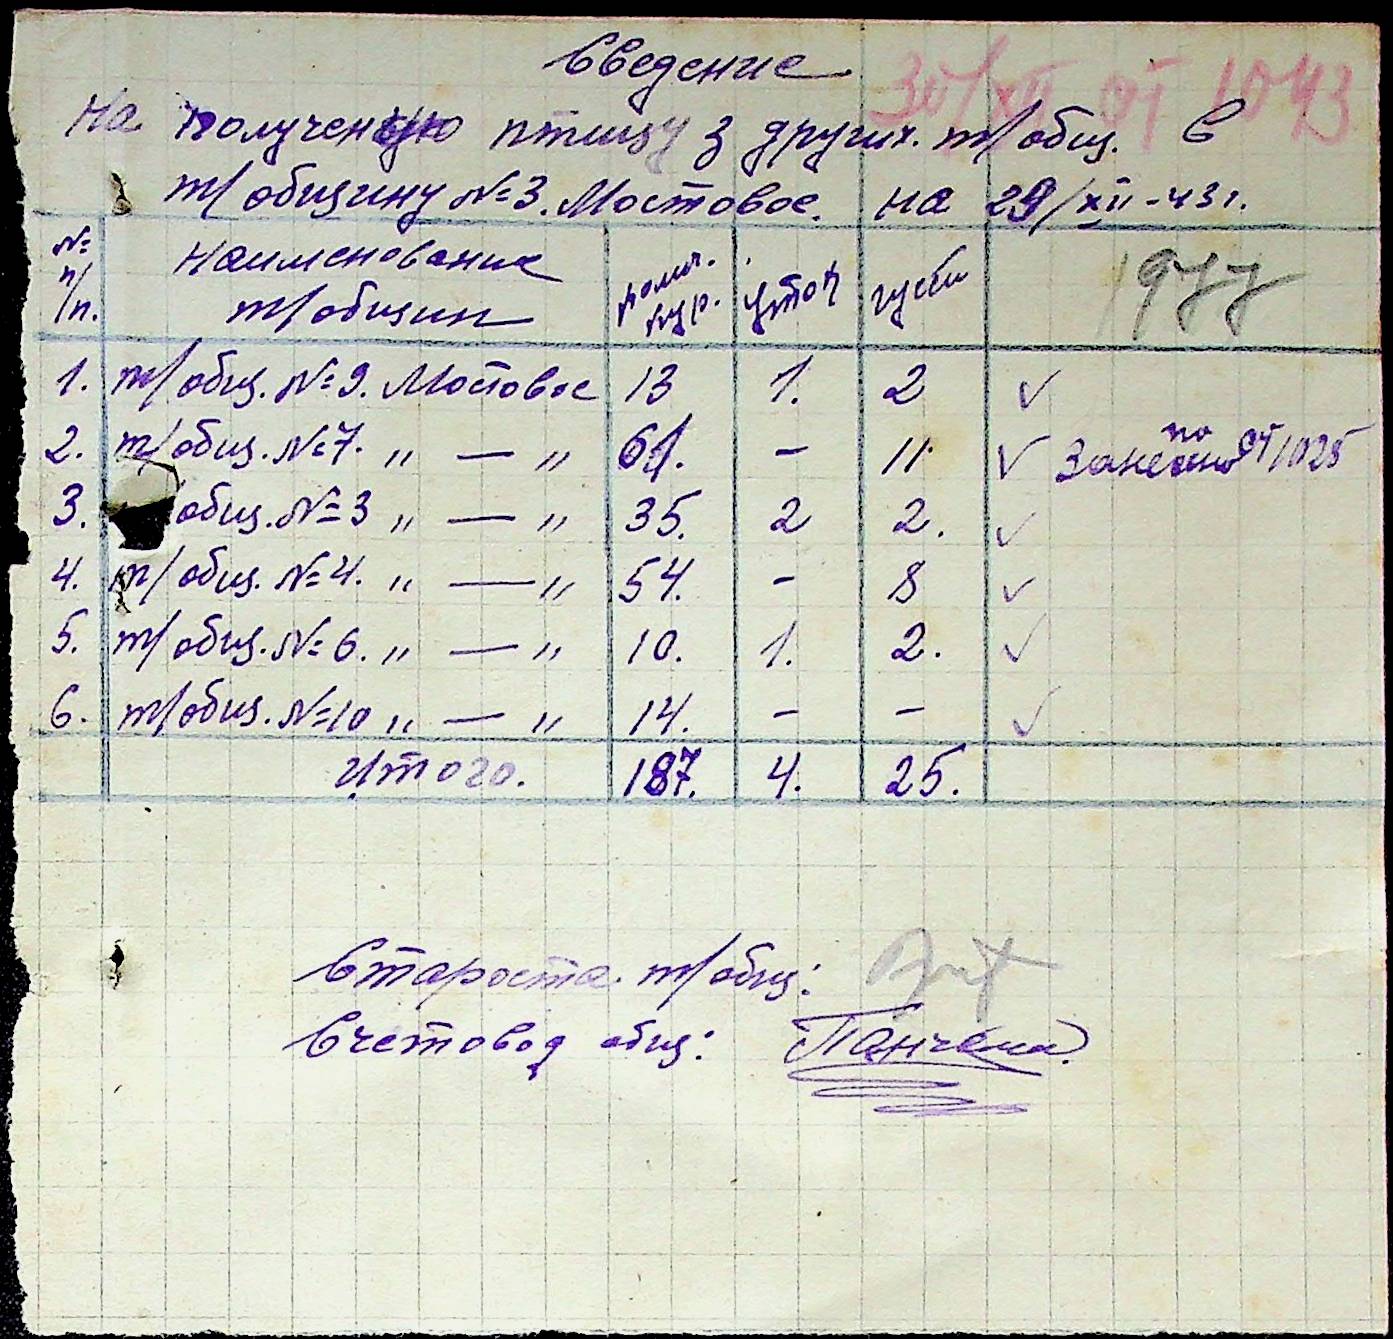 Сведение
30/XII от 1043
на полученную птицу з других т/общ. в
т/общину №3. Мостовое. на 29/XII-43г.
№ п/п. Наименование т/общин колич. кур. уток гусей 1977
1. т/общ. №9. Мостовое 13 1. 2 ✓
2. т/общ. №7. „ — „ 61. - 11. ✓ Занесено по от 1025
3. общ. №3 „ — „ 35. 2 2. ✓
4. т/общ. №4. „ — „ 54. - 8 ✓
5. т/общ. №6. „ — „ 10. 1. 2. ✓
6. т/общ. №10 „ — „ 14. - - ✓
Итого. 187. 4. 25.
Староста т/общ:
Счетовод общ: